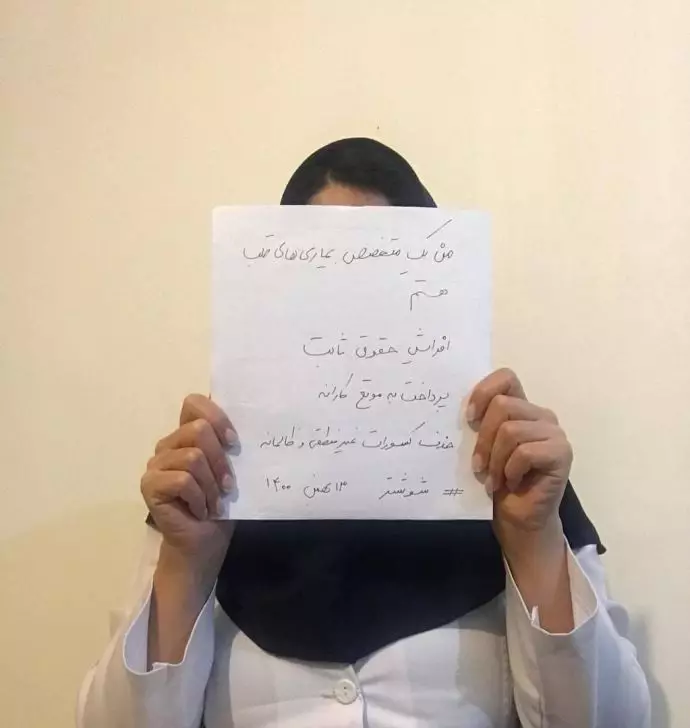 من یک متخصص بیماری‌های قلب
هستم
افزایش حقوق ثابت
پرداخت به موقع کارانه
حذف کسورات غیرمنطقی و ظالمانه
# شوشتر ۱۳ بهمن ۱۴۰۰